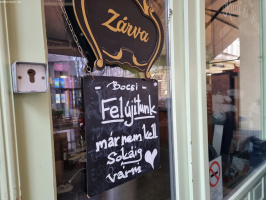 Zárva
Bocsi
Felújítunk
már nem kell
Sokáig
várni